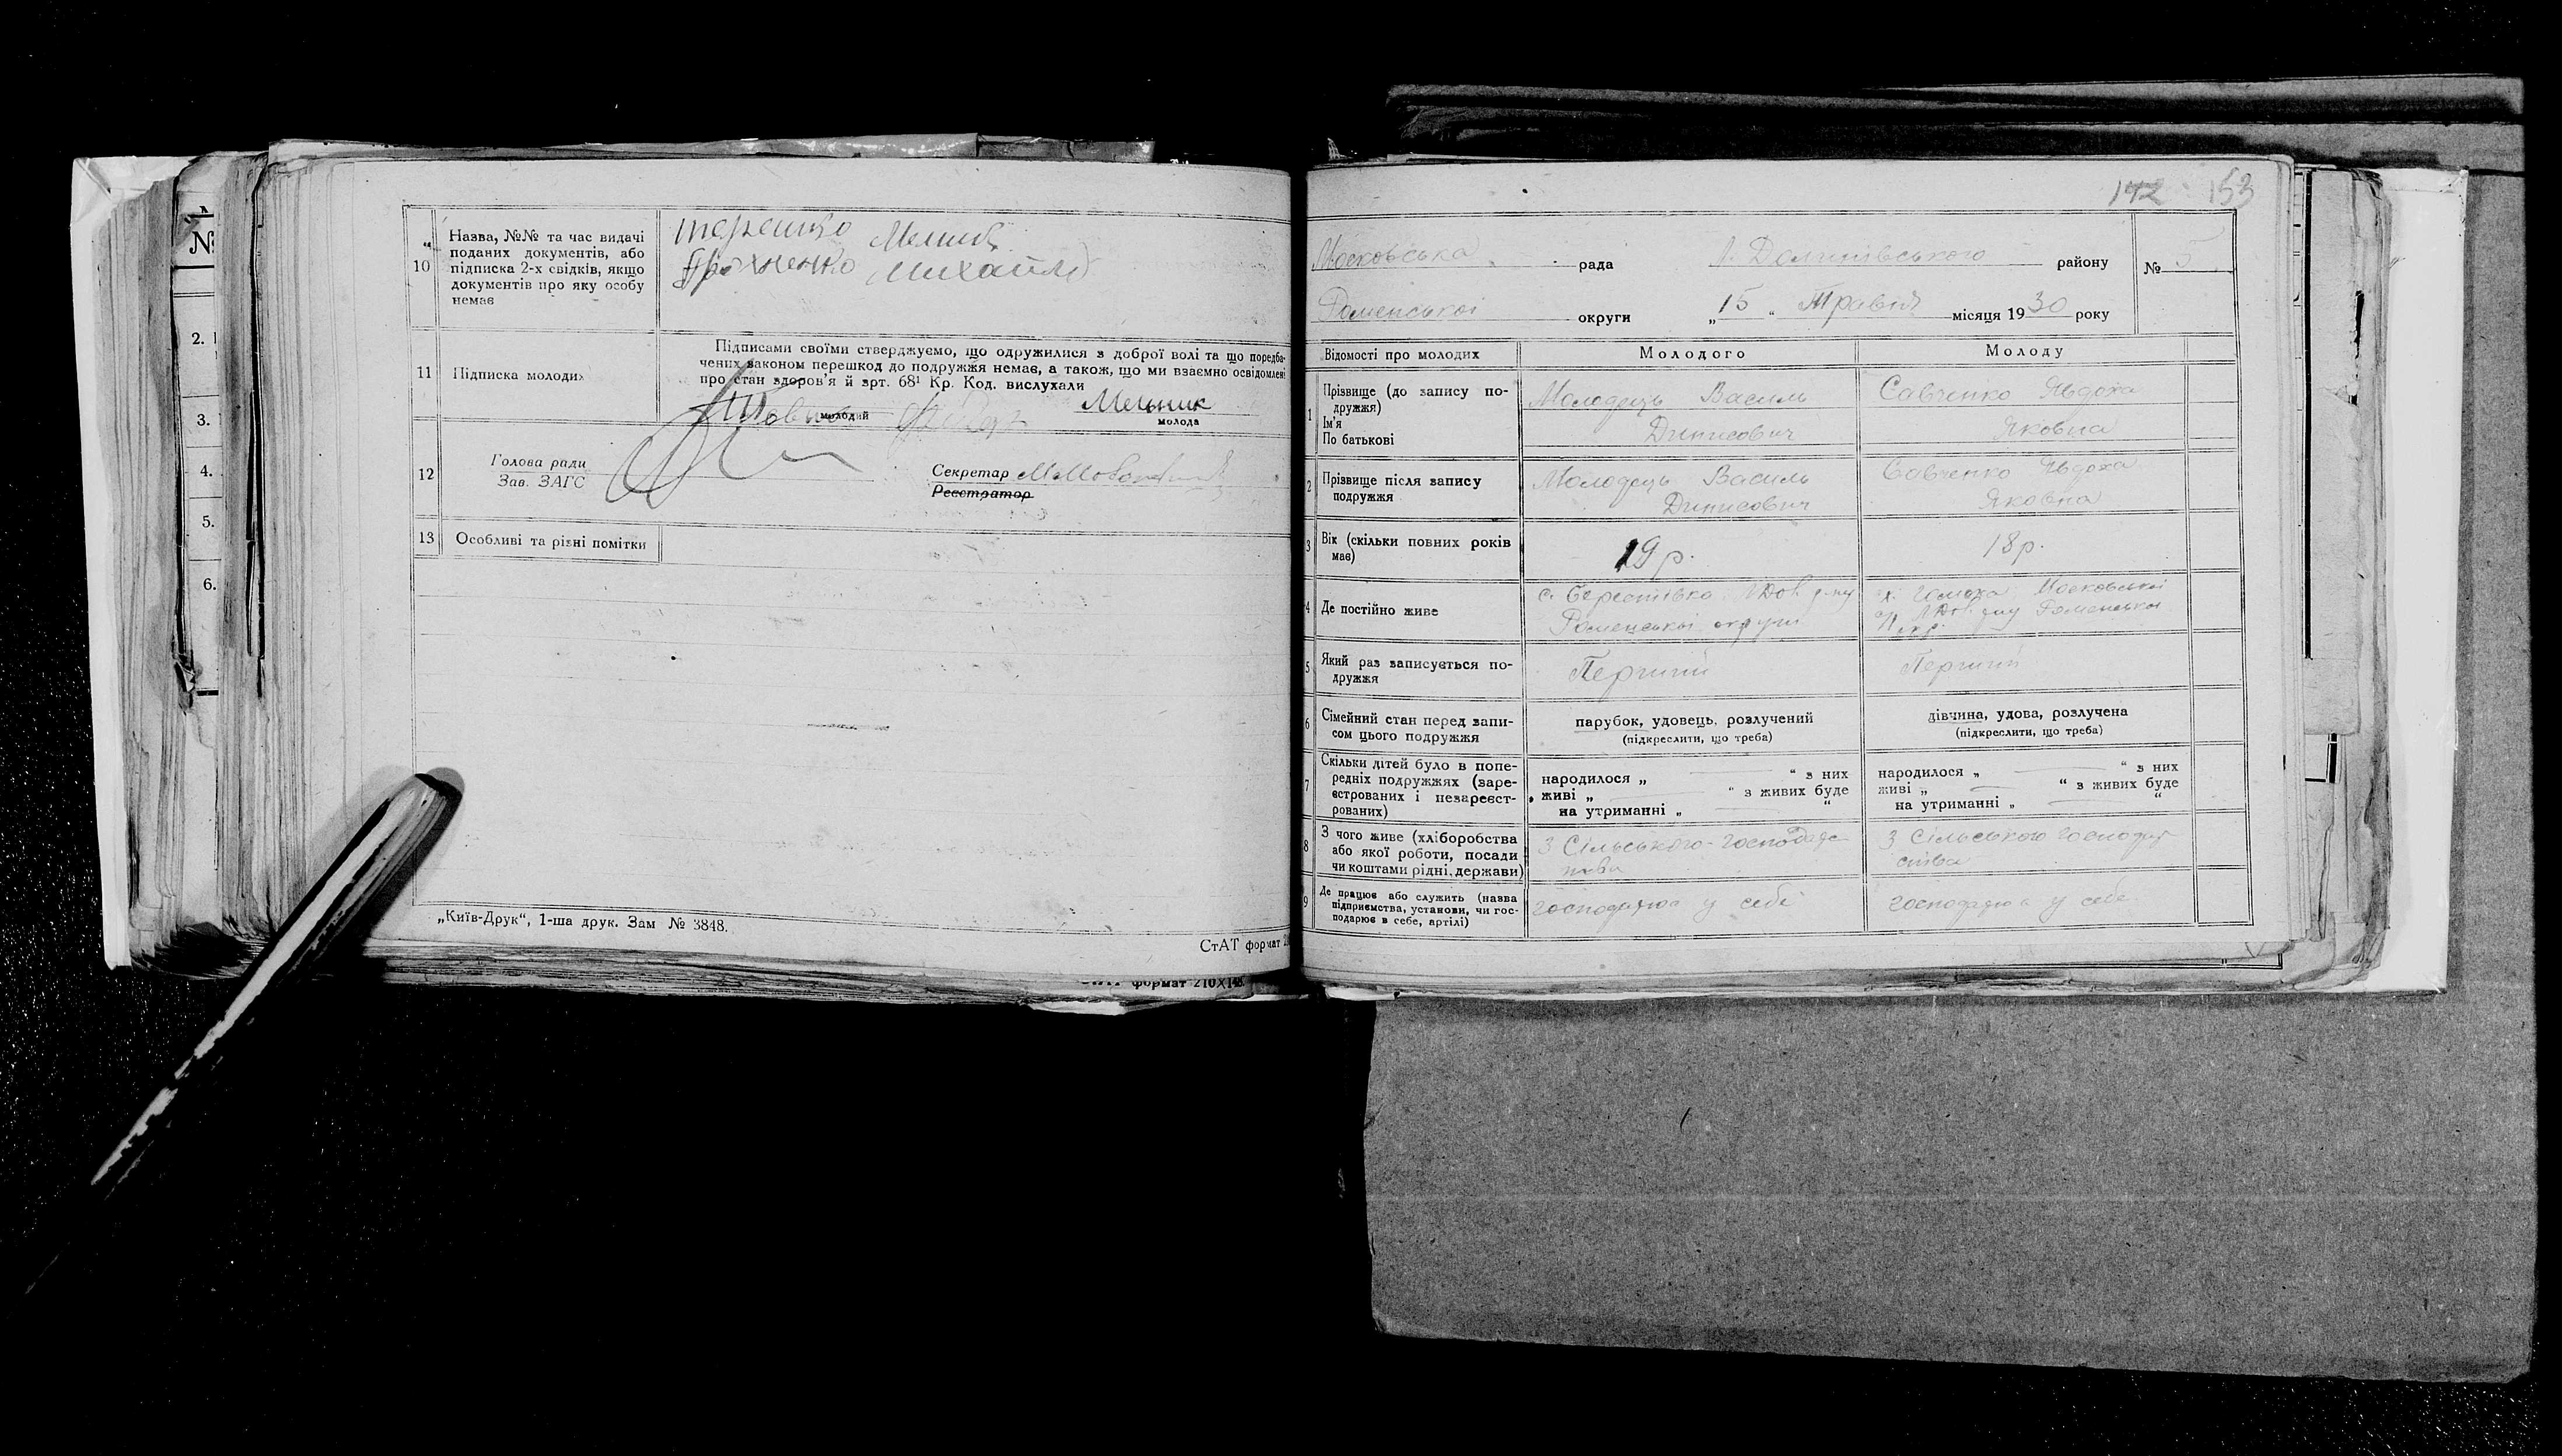 №
2.
3.
4.
5.
6.
10
Назва, №№ та час видачі
поданих документів, або
підписка 2-х свідків, якщо
документів про яку особу
немає
Терешко Мелник
Михайло
11
Підписка молодих
Підписами своїми стверджуємо, що одружилися з доброї волі та що передба-
чених законом перешкод до подружжя немає, а також, що ми взаємно освідомлені
про стан здоров'я й арт. 68¹ Кр. Код. вислухали
молодий
Мельник
молода
12
Голова ради
Зав. ЗАГС
Секретар
Реєстратор
13
Особливі та різні помітки
„Київ-Друк“, 1-ша друк. Зам № 3848.
СтАТ формат
формат 210Х148
142 153
Московська рада Л. Долинівського району
№ 5
Роменської округи „15“ Травня місяця 1930 року
Відомості про молодих
Молодого
Молоду
1
Прізвище (до запису по-
дружжя)
Ім'я
По батькові
Молодець Василь
Динисович
Савченко Явдоха
Яковна
2
Прізвище після запису
подружжя
Молодець Василь
Динисович
Савченко Явдоха
Яковна
3
Вік (скільки повних років
має)
19 р.
18 р.
4
Де постійно живе
с. Берестівка ЛДол. р-ну
Роменської округи
х. Московської
с/р ЛДол. р-ну Роменської
окр.
5
Який раз записується по-
дружжя
Перший
Перший
6
Сімейний стан перед запи-
сом цього подружжя
парубок, удовець, розлучений
(підкреслити, що треба)
дівчина, удова, розлучена
(підкреслити, що треба)
7
Скільки дітей було в попе-
редніх подружжях (заре-
єстрованих і незареєст-
рованих)
народилося „ — “ з них
живі „ — “ з живих буде
на утриманні „ — “
народилося „ — “ з них
живі „ — “ з живих буде
на утриманні „ — “
8
З чого живе (хліборобства
або якої роботи, посади
чи коштами рідні, держави)
З Сільського-господарс-
тва
З Сільського господар
ства
9
Де працює або служить (назва
підприємства, установи, чи гос-
подарює в себе, артілі)
господарює у себе
господарює у себе